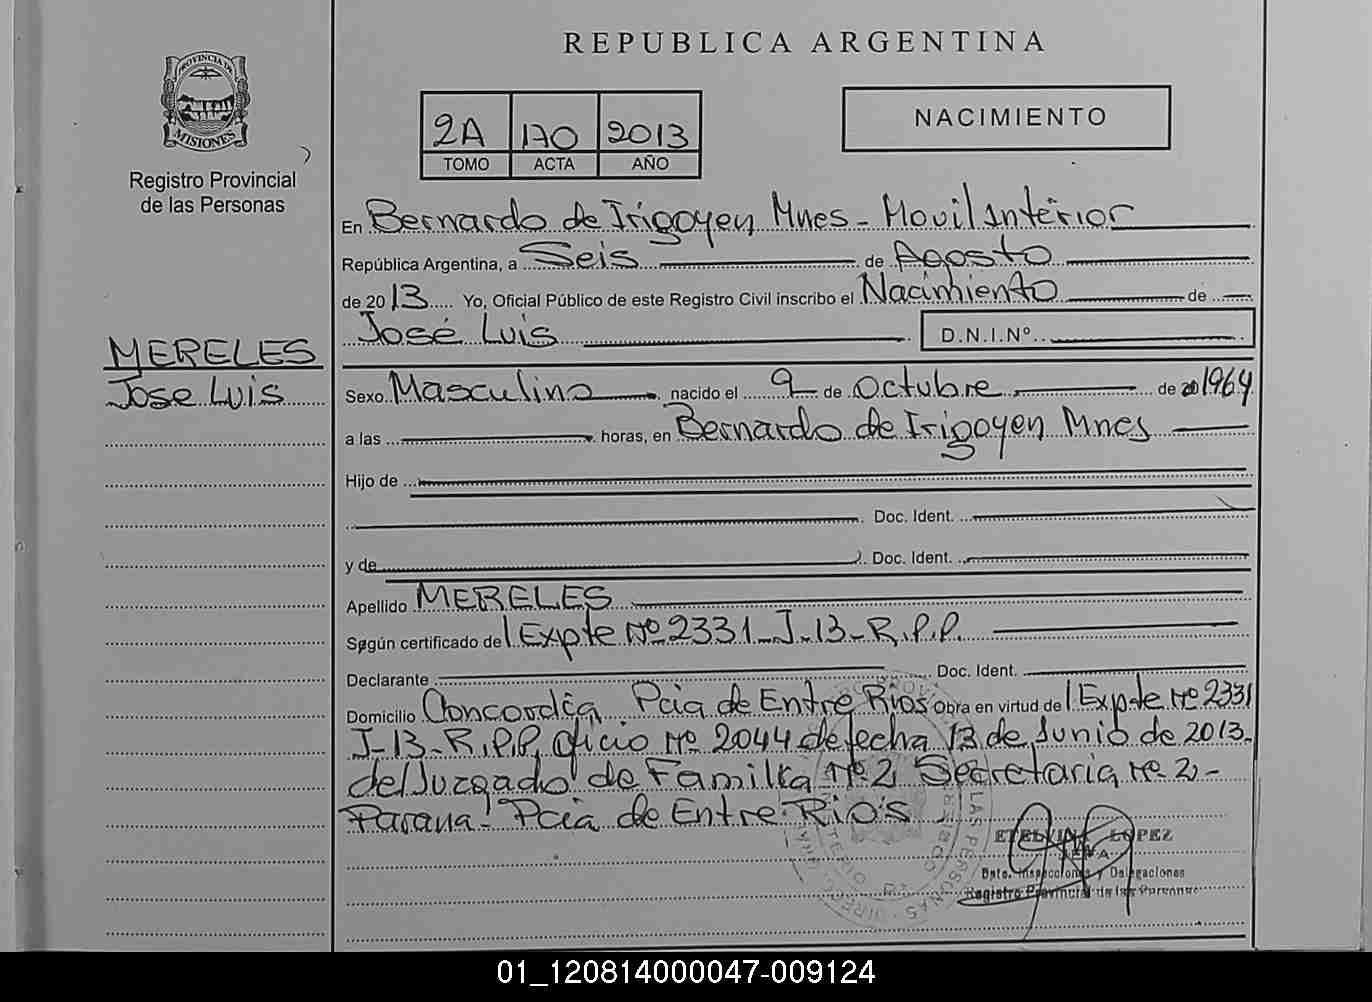 REPUBLICA ARGENTINA
PROVINCIA DE
MISIONES
Registro Provincial
de las Personas
2A 170 2013
TOMO ACTA AÑO
NACIMIENTO
En Bernardo de Irigoyen Mnes - Movil Interior
República Argentina, a Seis de Agosto
de 2013 Yo, Oficial Público de este Registro Civil inscribo el Nacimiento de
José Luis D.N.I.Nº
MERELES
Jose Luis
Sexo Masculino nacido el 9 de Octubre de 20 1964
a las horas, en Bernardo de Irigoyen Mnes
Hijo de
Doc. Ident.
y de Doc. Ident.
Apellido MERELES
Según certificado de l Expte Nº 2331 - J - 13 - R.P.P.
Declarante Doc. Ident.
Domicilio Concordia Pcia de Entre Rios Obra en virtud de l Expte Nº 2331
J - 13 - R.P.P. Oficio Nº 2044 de fecha 13 de Junio de 2013 -
del Juzgado de Familia Nº 2 Secretaria Nº 2 -
Parana - Pcia de Entre Rios
LOPEZ
JEFA
Dpto. Inspecciones y Delegaciones
Registro Provincial de las Personas
01_120814000047-009124